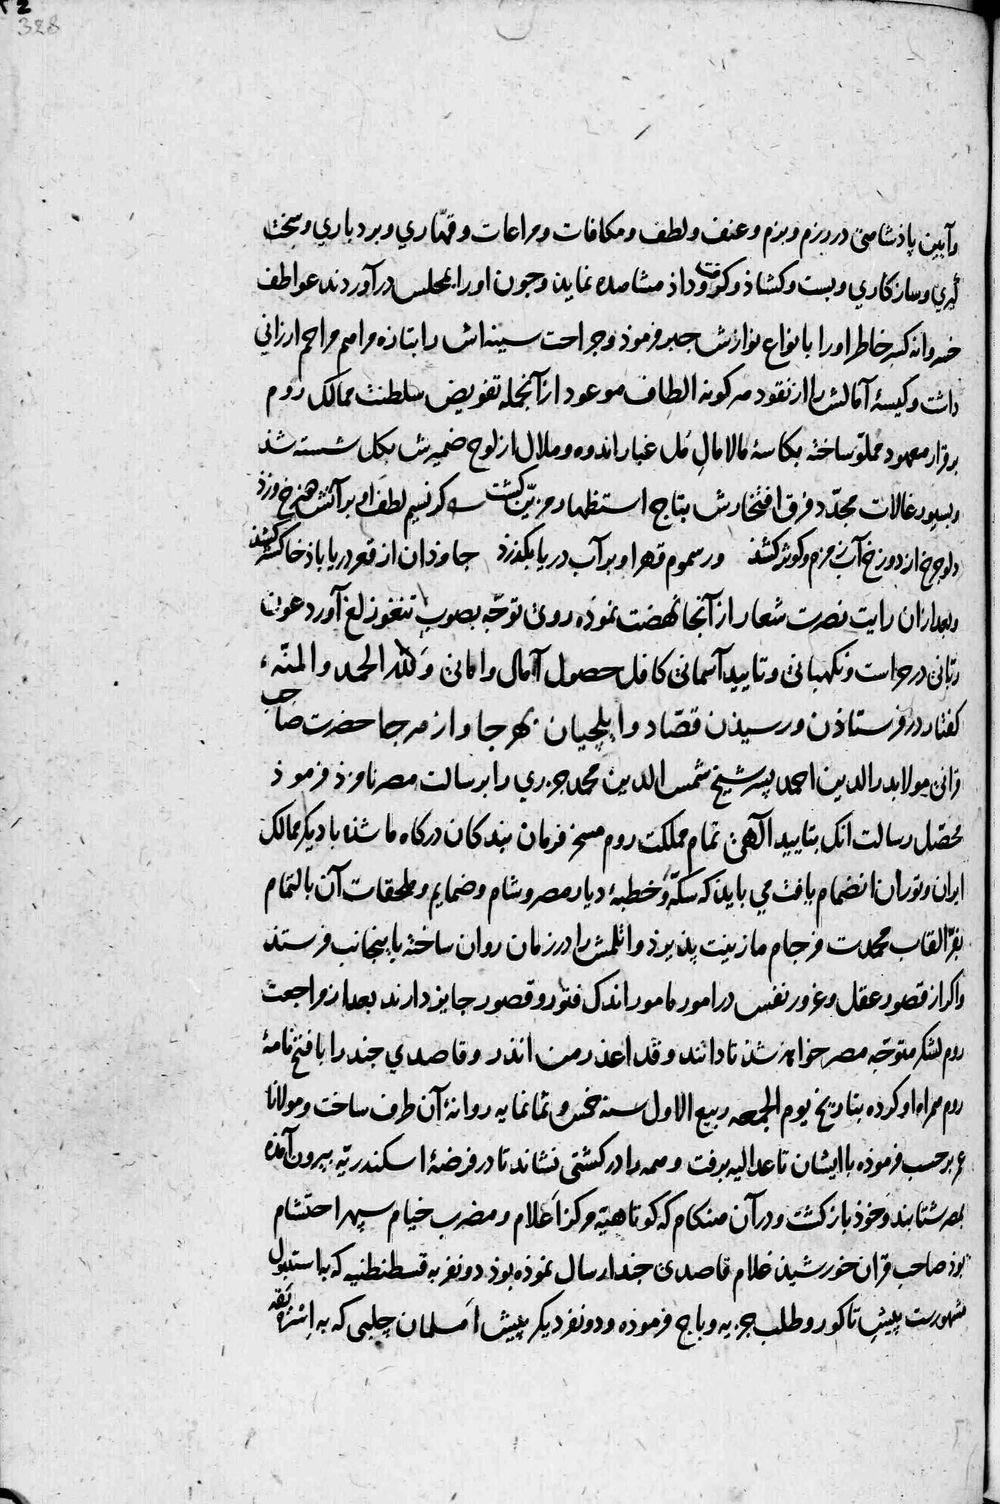 328
وآیین پاذشاهی در رزم وبزم وعنف ولطف ومکافات ومراعات وقهّاری وبردباری وسخت
گیری وسازکاری وبست وکشاذ وکرفت وداذ مشاهده نماید وچون اورا بمجلس درآوردند عواطف
خسروانه کسر خاطر اورا بانواع نوازش جبر فرموذ وجراحت سینه‌اش را بتازه مراهم مراحم ارزانی
داشت وکیسهٔ آمالش را از نقود هرکونه الطاف موعود از آنجمله تفویض سلطنت ممالک روم
برقرار معهود مملوّ ساخته بکاسهٔ مالامال مُل غبار اندوه وملال از لوح ضمیرش بکل شسته شذ
وبسیورغالات مجدّد فرق افتخارش بتاج استظهار مزیّن کشت کر نسیم لطف او بر آتش دوزخ وزد
دلو چرخ از دوزخ آب زمزم وکوثر کشذ ور سموم قهر او بر آب دریا بکذرد جاوذان از قعر دریا باذ خاکستر کشذ
وبعد از ان رایت نصرت شعار از آنجا نهضت نموذه روی توجّه بصوب تنغوزلغ آورد عون
ربّانی در حراست ونکهبانی وتایید آسمانی کافل حصول آمال وامانی ولله الحمد والمنّه
کفتار در فرستاذن ورسیذن قصّاد وایلچیان بهر جا واز هر جا حضرت صاحب
قرانی مولانا بدرالدین احمد پسر شیخ شمس الدین محمد جزری را برسالت مصر نامزذ فرموذ
محصّل رسالت انک بتایید الهی تمام مملکت روم مسخر فرمان بندکان درکاه ما شذه با دیکر ممالک
ایران وتوران انضمام یافت می بایذ که سکّه وخطبهٔ دیار مصر وشام وضمایم وملحقات آن بالتمام
بفرّ القاب محمدت فرجام ما زینت پذیرذ واتلمش را در زمان روان ساخته باینجانب فرستند
واکر از قصور عقل وغرور نفس در امور مامور اندک فتور وقصور جایز دارند بعد از مراجعت
روم لشکر متوجّه مصر خواهذ شذ تا دانند وقد اعذر من انذر وقاصدی چند را با فتح نامهٔ
روم همراه او کرده بتاریخ یوم الجمعه ربیع الاول سنه خمس وثمانمایه روانهٔ آن طرف ساخت ومولانا
عمر برحسب فرموذه با ایشان تا عدالیه برفت وهمه را در کشتی نشاند تا در فرضهٔ اسکندریّه بیرون آمذه
بمصر شتابند وخوذ بازکشت ودر آن هنکام که کوتاهیّه مرکز اعلام ومضرب خیام سپهر احتشام
بوذ صاحب قران خورشیذ غلام قاصدی چند ارسال نموذه بوذ دو نفر به قسطنطنیه که باستنبول
مشهورست پیش تاکور وطلب جزیه وباج فرموذه ودو نفر دیکر پیش امسلمان چلبی که به اسْرَه یَقَه